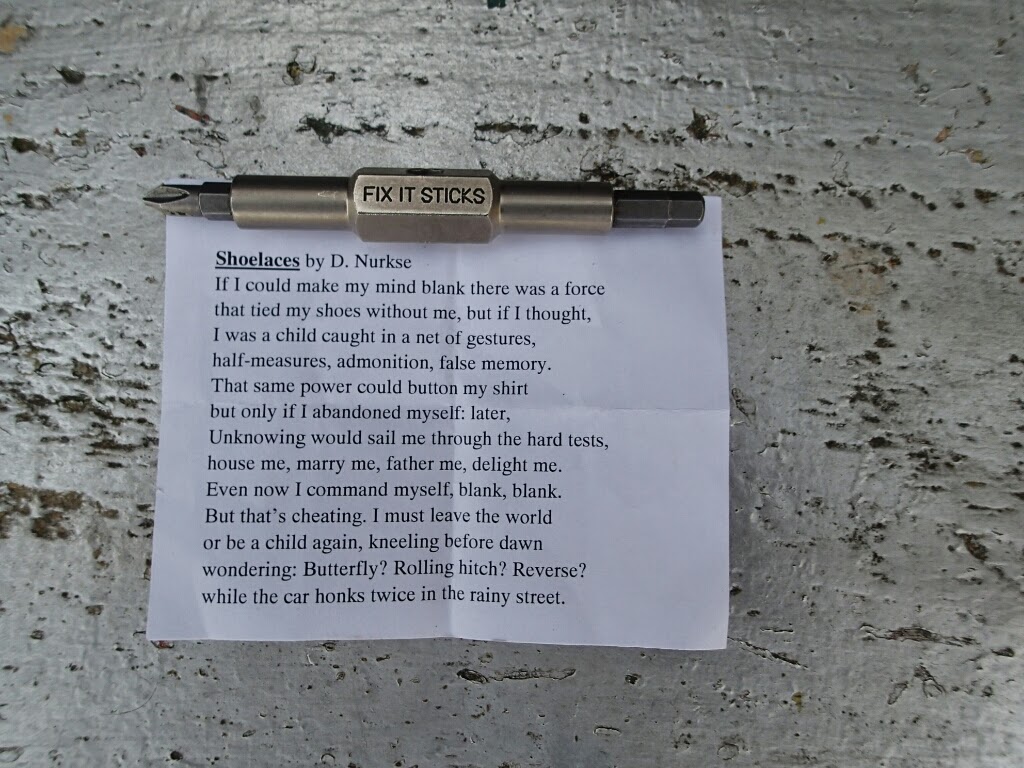 FIX IT STICKS
Shoelaces by D. Nurkse
If I could make my mind blank there was a force
that tied my shoes without me, but if I thought,
I was a child caught in a net of gestures,
half-measures, admonition, false memory.
That same power could button my shirt
but only if I abandoned myself: later,
Unknowing would sail me through the hard tests,
house me, marry me, father me, delight me.
Even now I command myself, blank, blank.
But that's cheating. I must leave the world
or be a child again, kneeling before dawn
wondering: Butterfly? Rolling hitch? Reverse?
while the car honks twice in the rainy street.